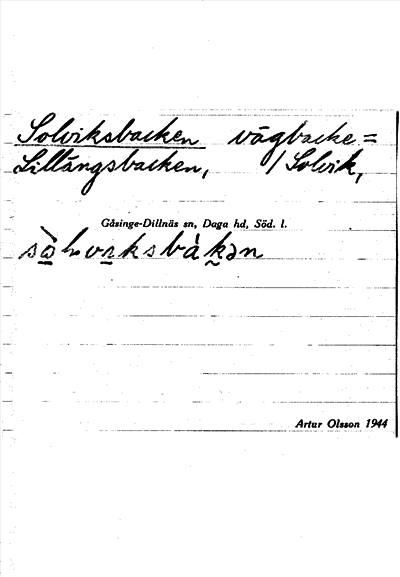 Solviksbacken vägbacke =
Lillängsbacken, / Solvik,
Gåsinge-Dillnäs sn, Daga hd, Söd. l.
Artur Olsson 1944